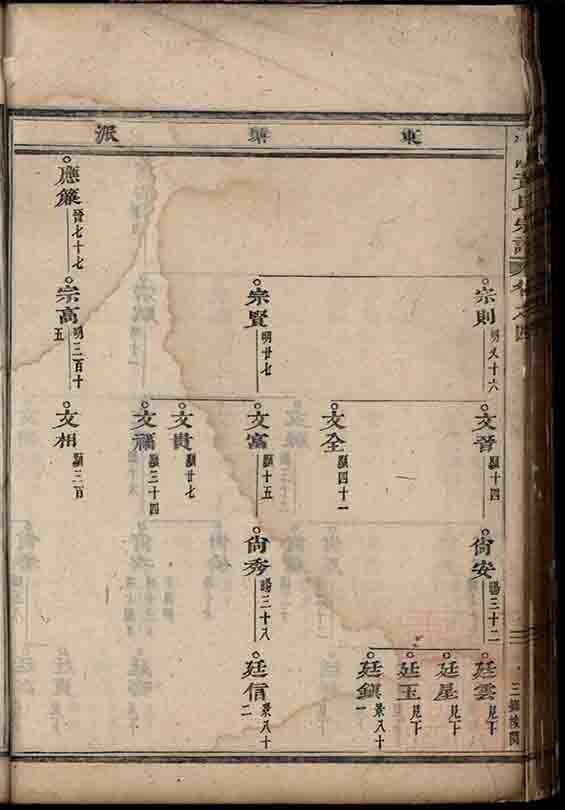 東塘派
氏宗譜 卷之四
宗則 明又十六
宗賢 明廿七
應簾 晉七十七
宗高 明三百十五
文晉 顯十四
文全 顯四十一
文富 顯十五
文貴 顯廿七
文福 顯三十四
文相 顯三百
尙安 暘三十二
尙秀 暘三十八
廷雲 見下
廷星 見下
廷玉 見下
廷鎮 景八十一
廷信 景八十二